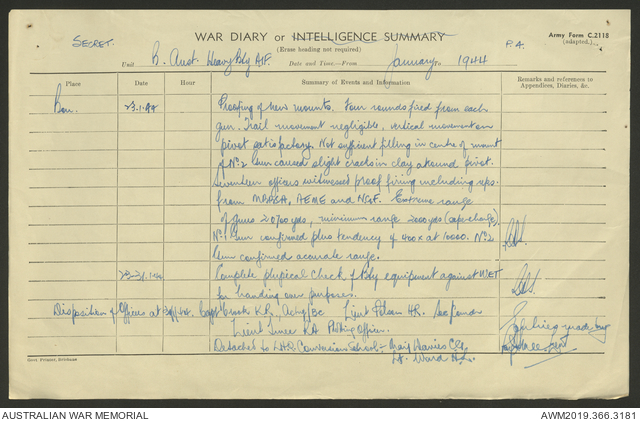 SECRET.
WAR DIARY or INTELLIGENCE SUMMARY
(Erase heading not required)
Army Form C.2118
(adapted.)
P.A.
Unit R. Aust. Heavy Bty AIF. Date and Time—From January to 1944
Place
Date
Hour
Summary of Events and Information
Remarks and references to
Appendices, Diaries, &c.
23.1.44
Proofing of new mounts. Four rounds fired from each
gun. Trail movement negligible, vertical movement on
pivot satisfactory. Not sufficient filling in centre of mount
of No 2 Gun caused slight cracks in clay around pivot.
Seventeen officers witnessed proof firing including reps.
from AEME and NGF. Extreme range
of guns 20700 yds, minimum range 2000 yds (super charge).
No 1 Gun confirmed plus tendency of 400x at 10000. No 2
Gun confirmed accurate range.
23-31.1.44
Complete physical check of Bty equipment against WET
for handing over purposes.
Disposition of Officers at Capt K.R. BC Lieut H.R.
Lieut K.A. Officer.
Detached to LHQ School:- Davies
Lt. Ward
made by
Govt. Printer, Brisbane
AUSTRALIAN WAR MEMORIAL
AWM2019.366.3181